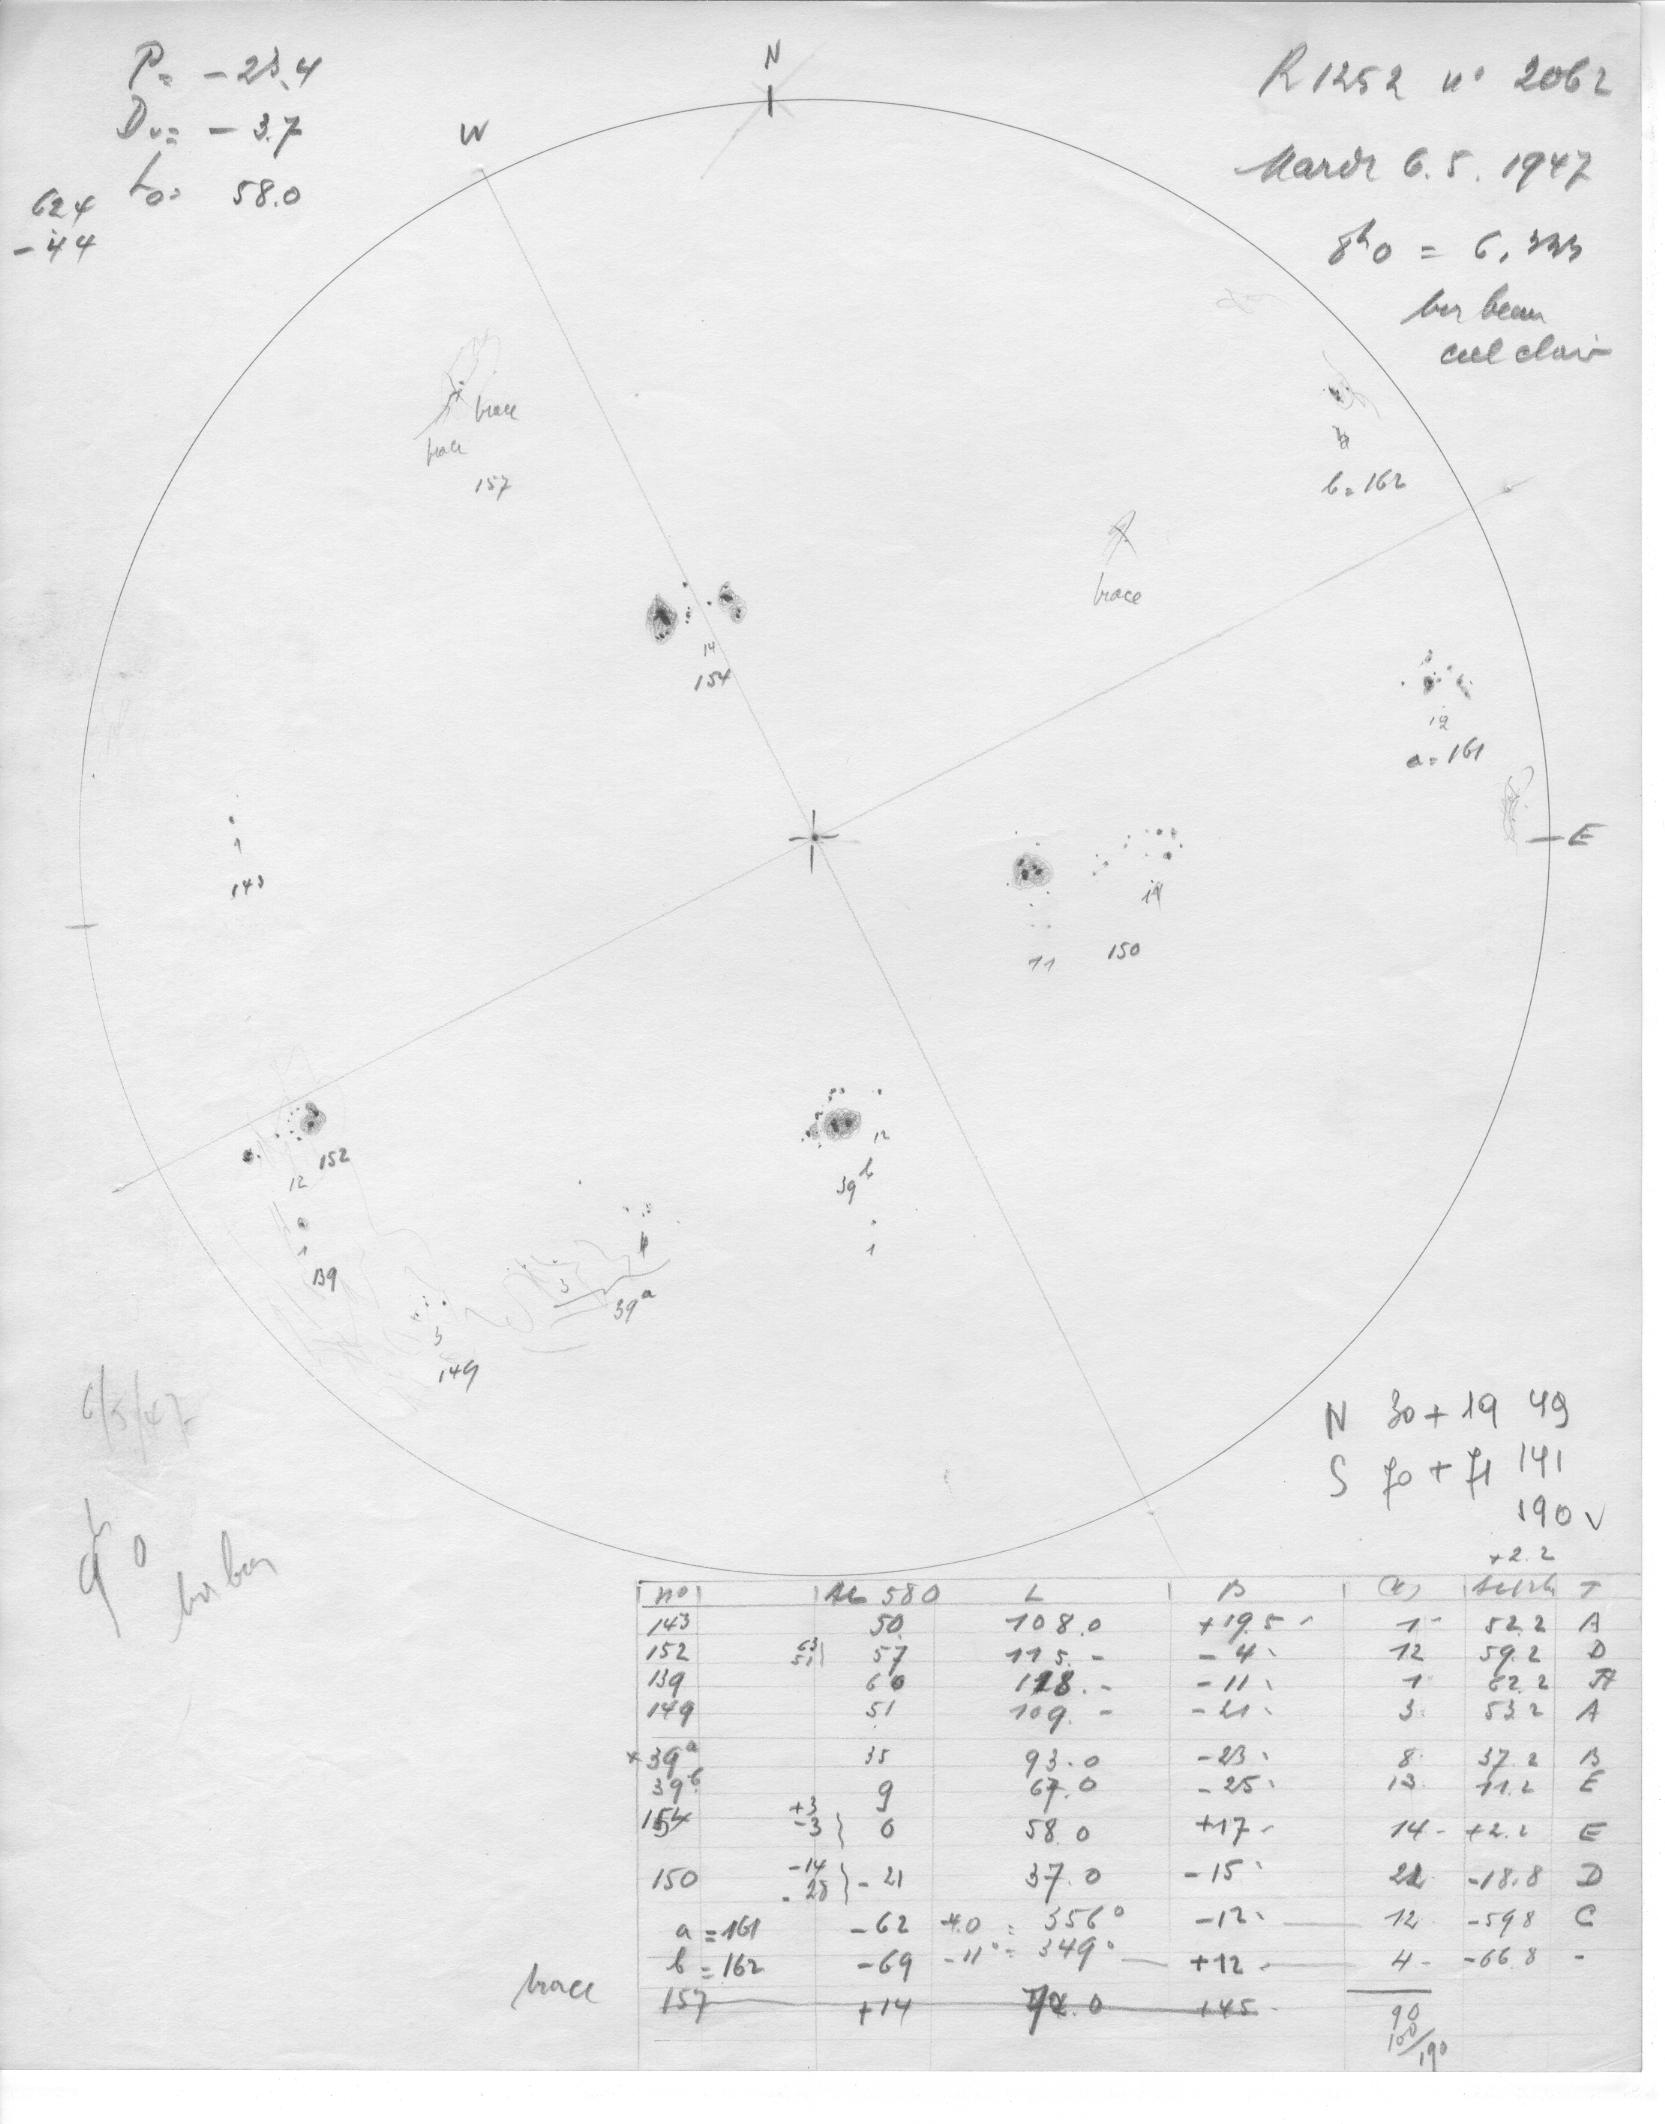 P= -23.4
D₀= -3.7
L₀= 58.0
624
-44
N
W
R1252 n° 2062
Mardi 6.5.1947
8h0 = 6,333
ter beau
ciel clair
trace
trace
157
b=162
trace
14
154
19
a=161
E
1
143
19
11
150
152
12
1
139
12
39b
1
4
3
39a
3
149
6/5/47
9h 0
N 30+19 49
S 70+71 141
190 v
+2.2
n° 580 L B T
143 50 108.0 +19.5 1 52.2 A
152 63 51 57 115.- -4 12 59.2 D
139 60 118.- -11 1 62.2 A
149 51 109.- -21 3 53.2 A
+39a 35 93.0 -23 8 37.2 B
39b 9 67.0 -25 13 11.2 E
154 +3 -3 } 0 58.0 +17 14 +2.2 E
150 -14 -28 } -21 37.0 -15 22 -18.8 D
a=161 -62 -4.0 = 356° -12 12 -59.8 C
b=162 -69 -11° = 349° +12 4 -66.8 -
trace 157 +14 72.0 +45
90
100/190